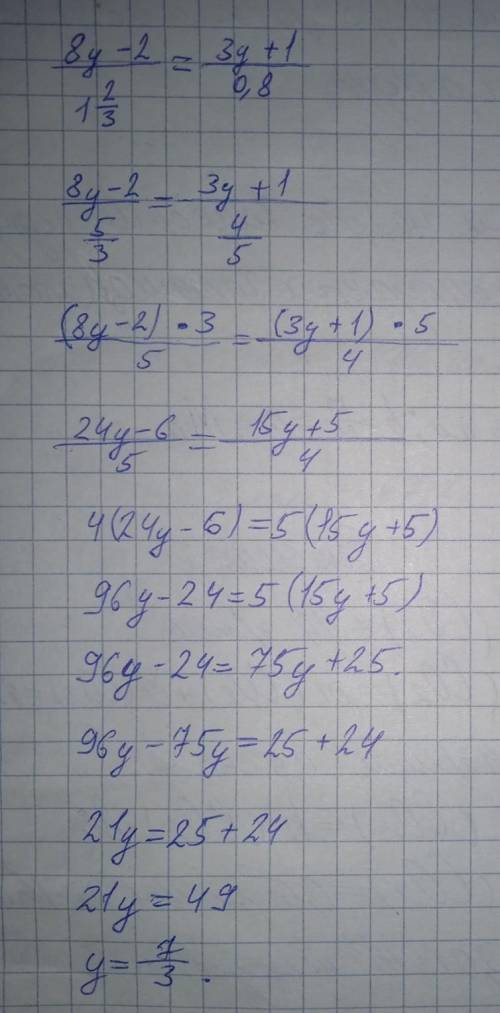 (8y-2)/(1 2/3) = (3y+1)/(0,8)
(8y-2)/(5/3) = (3y+1)/(4/5)
((8y-2)·3)/5 = ((3y+1)·5)/4
(24y-6)/5 = (15y+5)/4
4(24y-6)=5(15y+5)
96y-24=5(15y+5)
96y-24=75y+25.
96y-75y=25+24
21y=25+24
21y=49
y=7/3.